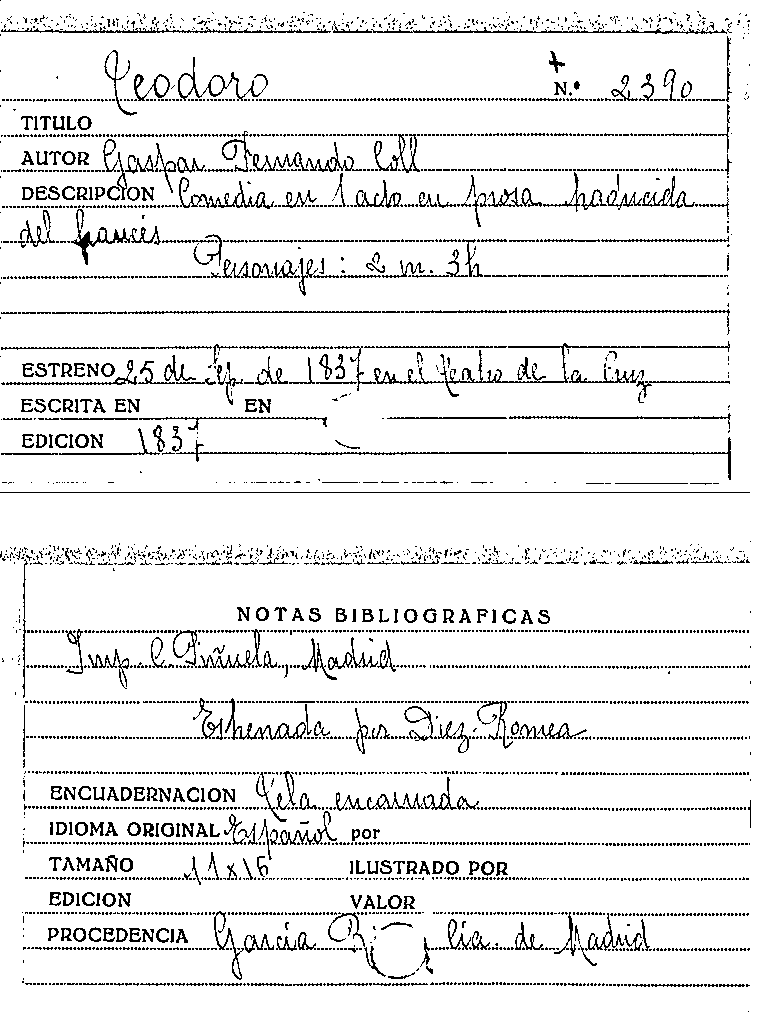 Teodoro
+
N.º 2390
TITULO
AUTOR Gaspar Fernando Coll
DESCRIPCION Comedia en 1 acto en prosa traducida
del francés
Personajes : 2 m. 3h
ESTRENO 25 de Sep. de 1837 en el teatro de la Cruz
ESCRITA EN EN
EDICION 1837
NOTAS BIBLIOGRAFICAS
Imp. C. Piñuela, Madrid
Estrenada por Diez-Romea
ENCUADERNACION Tela encarnada
IDIOMA ORIGINAL Español por
TAMAÑO 11x16 ILUSTRADO POR
EDICION VALOR
PROCEDENCIA Garcia lia. de Madrid